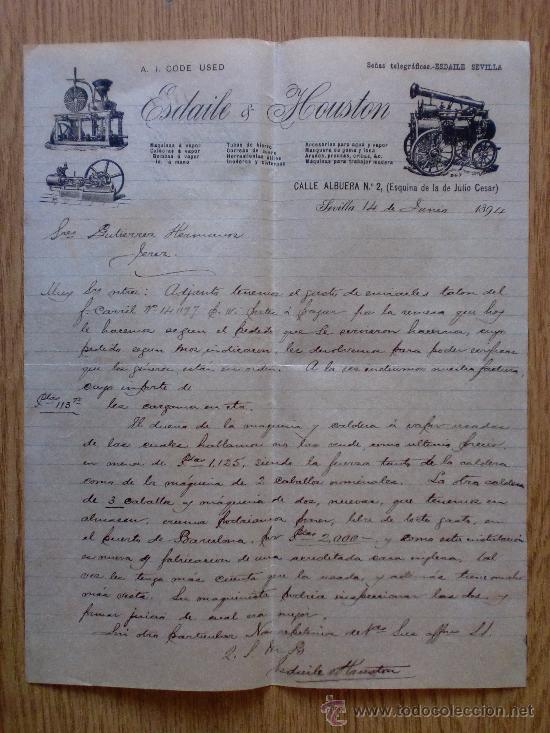 A. I. CODE USED
Señas telegráficas.-ESDAILE SEVILLA
Esdaile & Houston
Maquinas á vapor
Calderas á vapor
Bombas á vapor
Id. á mano
Tubos de hierro
Correas de cuero
Herramientas útiles
Inodoros y cisternas
Accesorios para agua y vapor
Manguera de goma y lona
Arados, prensas, cribas, &c.
Máquinas para trabajar madera
CALLE ALBUERA N.º 2, (Esquina de la de Julio Cesar)
Sevilla 14 de Junio 1894
Sres Gutierrez Hermanos
Jerez
Muy Sres ntros: Adjunto tenemos el gusto de enviarles talon del
f. Carril Nº 14 á pagar por la remesa que hoy
le hacemos segun el pedido que se sirvieron hacernos, cuyo
pedido segun indicacion, les devolvemos para poder
que los géneros estan en orden. A la vez nuestra factura,
cuyo importe de
Ptas 113 les cargamos en cta.
El dueño de la maquina y caldera á vapor usadas
de las cuales hablamos no las vende, como ultimo precio
en menos de Ptas 1,125, siendo la fuerza tanto de la caldera
como de la máquina de 2 caballos nominales. La otra caldera
de 3 caballos y máquina de dos, nuevas, que tenemos en
almacen, creemos podriamos poner, libre de todo gasto, en
el puerto de Barcelona, por Ptas 2,000 - y como esta instalacion
es nueva y fabricacion de una acreditada casa inglesa, tal
vez les tenga mas cuenta que la usada, y
más vista. Su maquinista podria inspeccionar las dos y
formar juicio de cual era mejor.
Sin otro particular Nos repetimos de Vds Sus affmos SS
Q. S. M. B.
Esdaile & Houston
todocoleccion.net